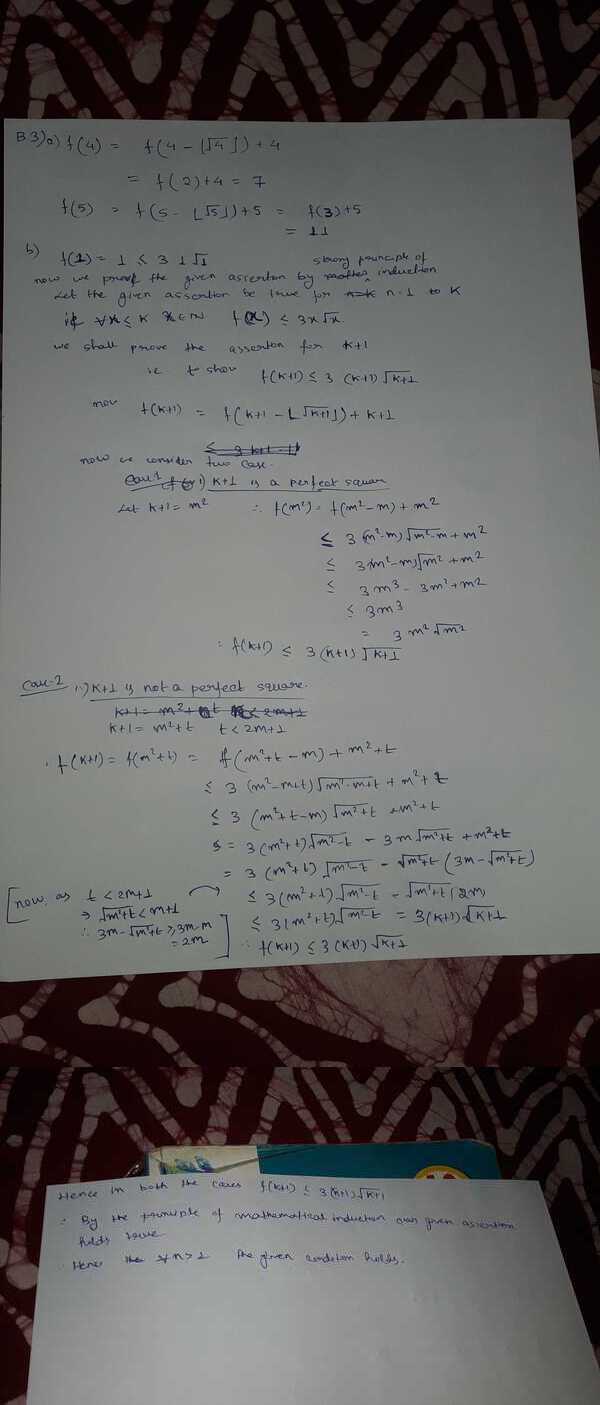 B3) a) f(4) = f(4 - ⌊√4⌋) + 4
= f(2) + 4 = 7
f(5) = f(5 - ⌊√5⌋) + 5 = f(3) + 5
= 11
b) f(1) = 1 ≤ 3 1 √1
strong principle of
now we proof the given assertion by induction
Let the given assertion be true for n=1 to K
if ∀ x ≤ K x ∈ N f(x) ≤ 3x√x.
we shall prove the asserton for K+1
i.e. t show f(K+1) ≤ 3 (K+1) √K+1
now f(K+1) = f(K+1 - ⌊√K+1⌋) + K+1
now we consider two case.
i) K+1 is a perfect square
Let K+1 = m² ∴ f(m²) = f(m²-m) + m²
≤ 3 (m²-m) √m²-m + m²
≤ 3(m²-m)√m² + m²
≤ 3m³ - 3m² + m²
≤ 3m³
= 3 m² √m²
∴ f(K+1) ≤ 3(K+1) √K+1
Case-2 ii) K+1 is not a perfect square.
K+1 = m²+t t < 2m+1
∴ f(K+1) = f(m²+t) = f(m²+t-m) + m²+t
≤ 3 (m²-m+t) √m²-m+t + m²+t
≤ 3 (m²+t-m) √m²+t + m²+t
= 3(m²+t)√m²-t - 3m√m²+t + m²+t
= 3 (m²+t) √m²-t - √m²+t (3m-√m²+t)
[now, as t < 2m+1 ≤ 3(m²+t)√m²-t - √m²+t (2m)
⇒ √m²+t < m+1 ≤ 3(m²+t)√m²-t = 3(K+1)√K+1
∴ 3m-√m²+t ≥ 3m-m
= 2m] ∴ f(K+1) ≤ 3(K+1) √K+1
Hence in both the cases f(K+1) ≤ 3(K+1)√K+1
∴ By the principle of mathematical induction our given assertion
holds
∴ Hence the ∀ n ≥ 1 the given condition holds.